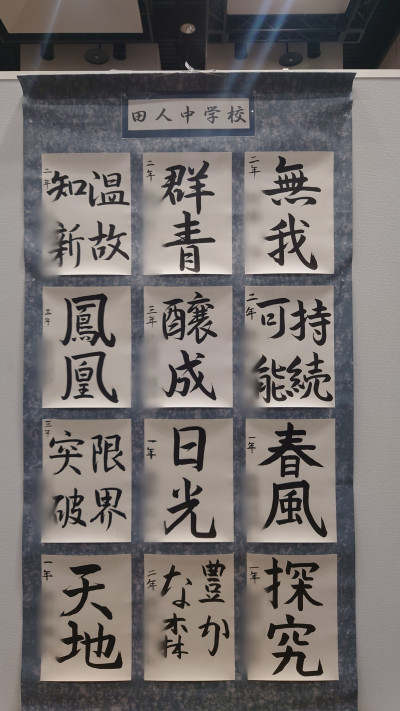 田人中学校
二年
無我
二年
群青
二年
温故
知新
二年
持続
可能
三年
醸成
三年
鳳凰
一年
春風
一年
日光
三年
限界
突破
一年
探究
二年
豊か
な森
一年
天地